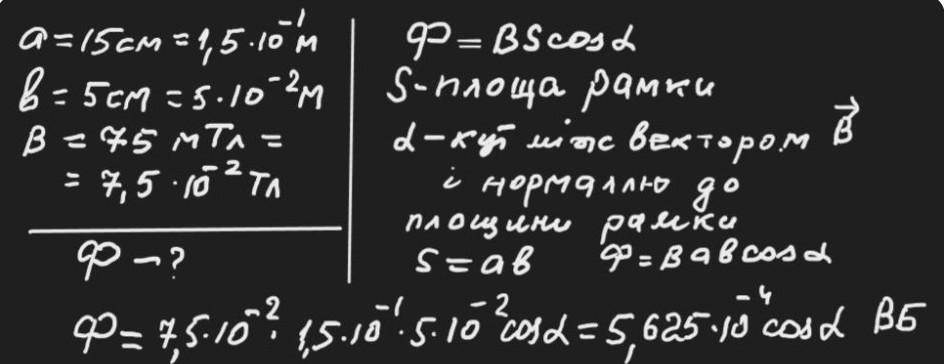 a = 15см = 1,5·10⁻¹м
в = 5см = 5·10⁻²м
B = 75 мТл =
= 7,5·10⁻² Тл
Ф – ?
Ф = BScosα
S – площа рамки
α – кут між вектором B⃗
і нормаллю до
площини рамки
S = aв Ф = Baвcosα
Ф = 7,5·10⁻²·1,5·10⁻¹·5·10⁻²cosα = 5,625·10⁻⁴cosα Вб